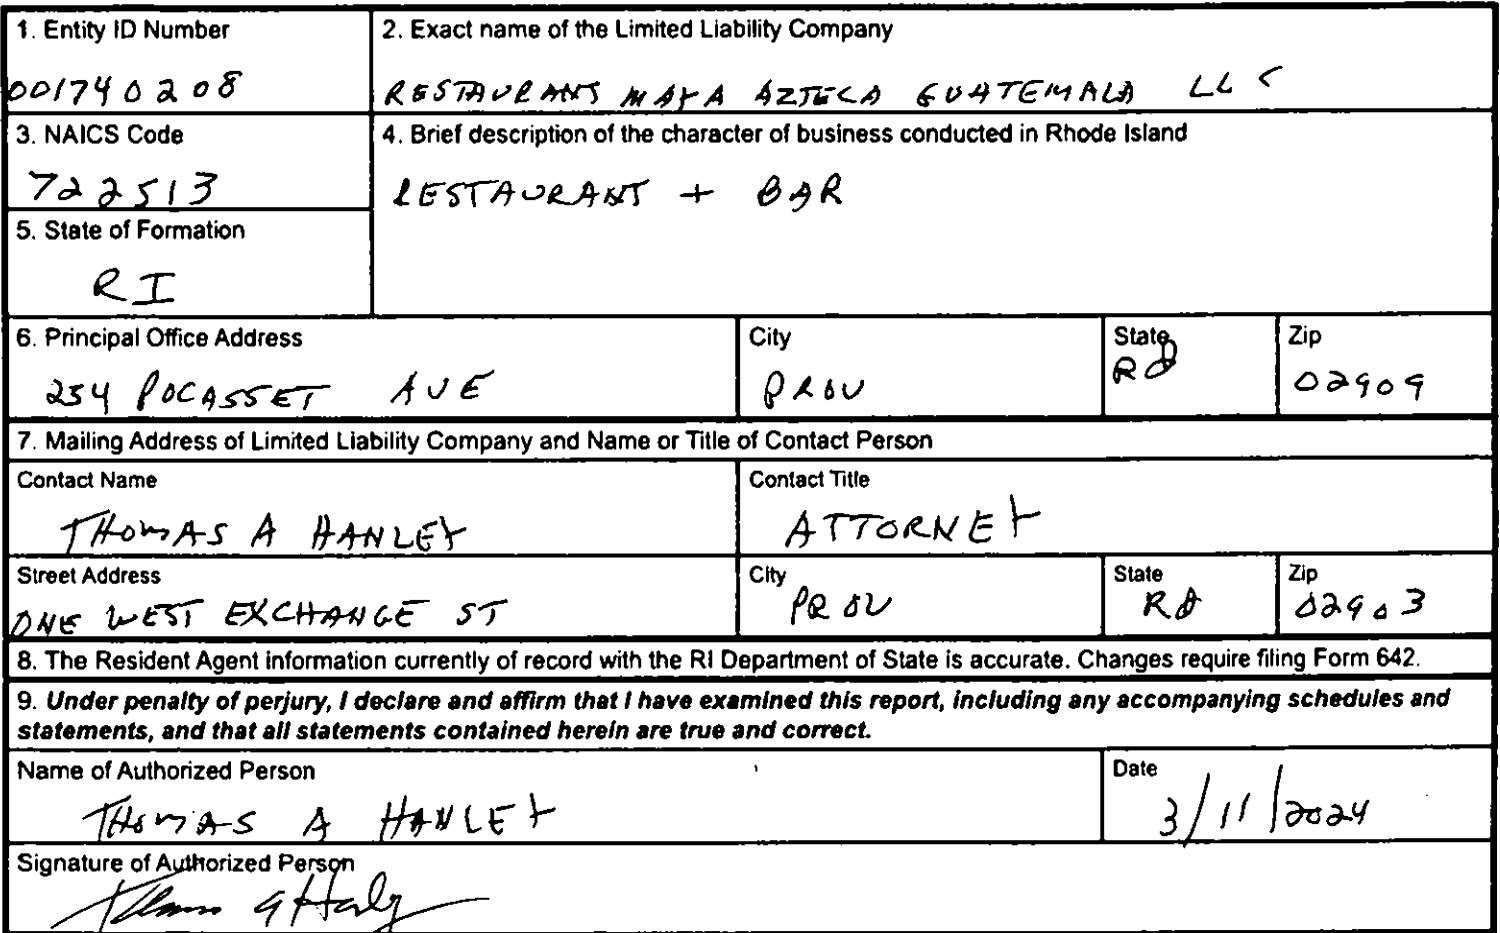 1. Entity ID Number
001740208
2. Exact name of the Limited Liability Company
RESTAURANTS MAYA AZTECA GUATEMALA LLC
3. NAICS Code
722513
4. Brief description of the character of business conducted in Rhode Island
RESTAURANT + BAR
5. State of Formation
RI
6. Principal Office Address
254 POCASSET AVE
City
PROV
State
RI
Zip
02909
7. Mailing Address of Limited Liability Company and Name or Title of Contact Person
Contact Name
THOMAS A HANLEY
Contact Title
ATTORNEY
Street Address
ONE WEST EXCHANGE ST
City
PROV
State
RI
Zip
02903
8. The Resident Agent information currently of record with the RI Department of State is accurate. Changes require filing Form 642.
9. Under penalty of perjury, I declare and affirm that I have examined this report, including any accompanying schedules and
statements, and that all statements contained herein are true and correct.
Name of Authorized Person
THOMAS A HANLEY
Date
3/11/2024
Signature of Authorized Person
Thomas A Hanley